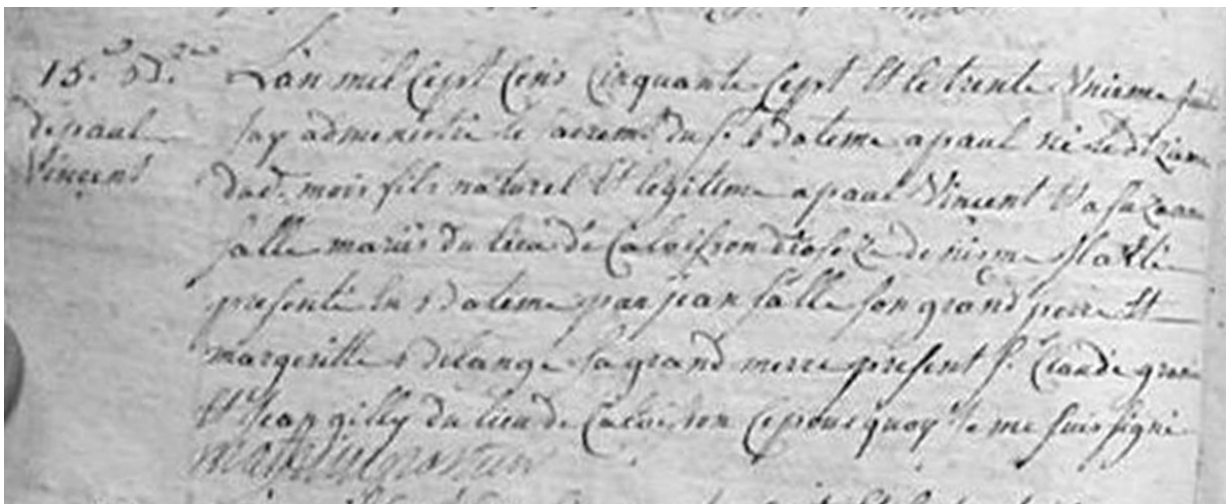 15.e Bd.me L'an mil cept cens cinquante cept et le trente unieme
de paul jay administré le sacremt du st Bateme a paul né le dixiem
Vincent dud. mois fils naturel et legitime a paul Vincent et a suzanne
salle mariés du lieu de Calvisson de nisme il a été
presenté en Bateme par jean salle son grand perre et
margeritte sa grand merre present sr. Claude
et jean gilly du lieu de Calvisson ce pourquoy je me suis signé